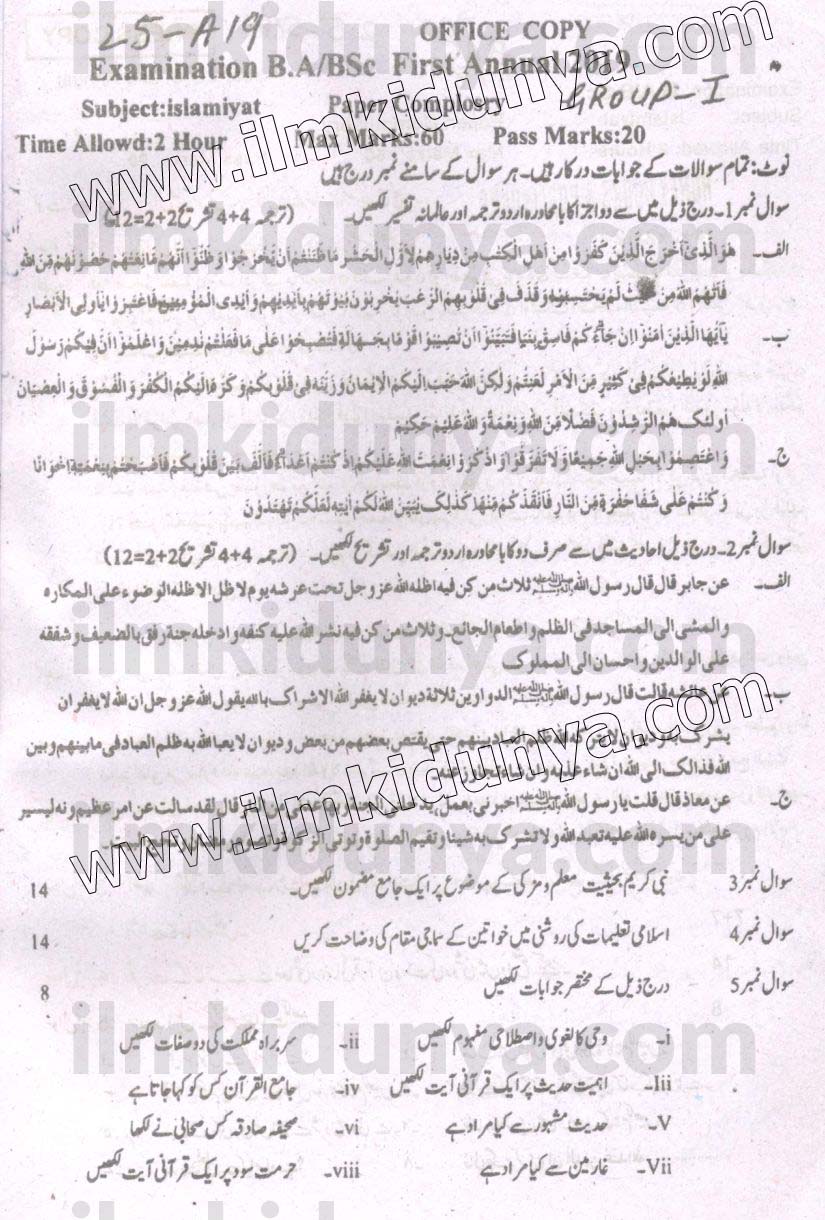 25-A19
OFFICE COPY
Examination B.A/BSc First Annual 2019
GROUP-I
Subject:islamiyat Paper Complosry
Time Allowd:2 Hour Max Marks:60 Pass Marks:20
نوٹ: تمام سوالات کے جوابات درکار ہیں۔ ہر سوال کے سامنے نمبر درج ہیں
سوال نمبر 1۔ درج ذیل میں سے دو اجزا کا بامحاورہ اردو ترجمہ اور عالمانہ تفسیر لکھیں۔ (ترجمہ 4+4 تشریح 2+2=12)
الف۔ هُوَ الَّذِىْٓ اَخْرَجَ الَّذِيْنَ كَفَرُوْا مِنْ اَهْلِ الْكِتٰبِ مِنْ دِيَارِهِمْ لِاَوَّلِ الْحَشْرِ مَا ظَنَنْتُمْ اَنْ يَّخْرُجُوْا وَظَنُّوْٓا اَنَّهُمْ مَّانِعَتُهُمْ حُصُوْنُهُمْ مِّنَ اللهِ
فَاَتٰهُمُ اللهُ مِنْ حَيْثُ لَمْ يَحْتَسِبُوْا وَقَذَفَ فِىْ قُلُوْبِهِمُ الرُّعْبَ يُخْرِبُوْنَ بُيُوْتَهُمْ بِاَيْدِيْهِمْ وَاَيْدِى الْمُؤْمِنِيْنَ فَاعْتَبِرُوْا يٰٓاُولِى الْاَبْصَارِ
ب۔ يٰٓاَيُّهَا الَّذِيْنَ اٰمَنُوْٓا اِنْ جَآءَكُمْ فَاسِقٌ بِنَبَاٍ فَتَبَيَّنُوْٓا اَنْ تُصِيْبُوْا قَوْمًا بِجَهَالَةٍ فَتُصْبِحُوْا عَلٰى مَا فَعَلْتُمْ نٰدِمِيْنَ وَاعْلَمُوْٓا اَنَّ فِيْكُمْ رَسُوْلَ
اللهِ لَوْ يُطِيْعُكُمْ فِىْ كَثِيْرٍ مِّنَ الْاَمْرِ لَعَنِتُّمْ وَلٰكِنَّ اللهَ حَبَّبَ اِلَيْكُمُ الْاِيْمَانَ وَزَيَّنَهٗ فِىْ قُلُوْبِكُمْ وَكَرَّهَ اِلَيْكُمُ الْكُفْرَ وَالْفُسُوْقَ وَالْعِصْيَانَ
اُولٰٓئِكَ هُمُ الرّٰشِدُوْنَ فَضْلًا مِّنَ اللهِ وَنِعْمَةً وَاللهُ عَلِيْمٌ حَكِيْمٌ
ج۔ وَاعْتَصِمُوْا بِحَبْلِ اللهِ جَمِيْعًا وَّلَا تَفَرَّقُوْا وَاذْكُرُوْا نِعْمَتَ اللهِ عَلَيْكُمْ اِذْ كُنْتُمْ اَعْدَآءً فَاَلَّفَ بَيْنَ قُلُوْبِكُمْ فَاَصْبَحْتُمْ بِنِعْمَتِهٖٓ اِخْوَانًا
وَكُنْتُمْ عَلٰى شَفَا حُفْرَةٍ مِّنَ النَّارِ فَاَنْقَذَكُمْ مِّنْهَا كَذٰلِكَ يُبَيِّنُ اللهُ لَكُمْ اٰيٰتِهٖ لَعَلَّكُمْ تَهْتَدُوْنَ
سوال نمبر 2۔ درج ذیل احادیث میں سے صرف دو کا بامحاورہ اردو ترجمہ اور تشریح لکھیں۔ (ترجمہ 4+4 تشریح 2+2=12)
الف۔ عن جابر قال قال رسول اللهﷺ ثلاث من كن فيه اظله الله عز و جل تحت عرشه يوم لا ظل الا ظله الوضوء على المكاره
و المشى الى المساجد فى الظلم و اطعام الجائع۔ و ثلاث من كن فيه نشر الله عليه كنفه و ادخله جنة رفق بالضعيف و شفقه
على الوالدين و احسان الى المملوک
ب۔ عن عائشه قالت قال رسول اللهﷺ الدواوين ثلاثة ديوان لا يغفر الله الاشراک بالله يقول الله عز وجل ان الله لا يغفر ان
يشرک به و ديوان لا يتركه الله ظلم العباد بينهم حتى يقتص بعضهم من بعض و ديوان لا يعبا الله به ظلم العباد فى ما بينهم و بين
الله فذالک الى الله ان شاء عذبه و ان شاء تجاوز عنه
ج۔ عن معاذ قال قلت يا رسول اللهﷺ اخبرنى بعمل يدخلنى الجنة و يباعدنى من النار قال لقد سالت عن امر عظيم و نه ليسير
على من يسره الله عليه تعبد الله ولا تشرک به شيئا و تقيم الصلوة و توتى الزكوة
سوال نمبر 3 نبی کریم بحیثیت معلم و مزکی کے موضوع پر ایک جامع مضمون لکھیں۔ 14
سوال نمبر 4 اسلامی تعلیمات کی روشنی میں خواتین کے سماجی مقام کی وضاحت کریں 14
سوال نمبر 5 درج ذیل کے مختصر جوابات لکھیں 8
i۔ وحی کا لغوی و اصطلاحی مفہوم لکھیں ii۔ سربراہ مملکت کی دو صفات لکھیں
Iii۔ اہمیت حدیث پر ایک قرآنی آیت لکھیں iv۔ جامع القرآن کس کو کہا جاتا ہے
V۔ حدیث مشہور سے کیا مراد ہے vi۔ صحیفہ صادقہ کس صحابی نے لکھا
Vii۔ غارمین سے کیا مراد ہے viii۔ حرمت سود پر ایک قرآنی آیت لکھیں
www.ilmkidunya.com
www.ilmkidunya.com
ilmkidunya.com
ilmkidunya.com
ilmkidunya.com
ilmkidunya.com
ilmkidunya.com
ilmkidunya.com
ilmkidunya.com